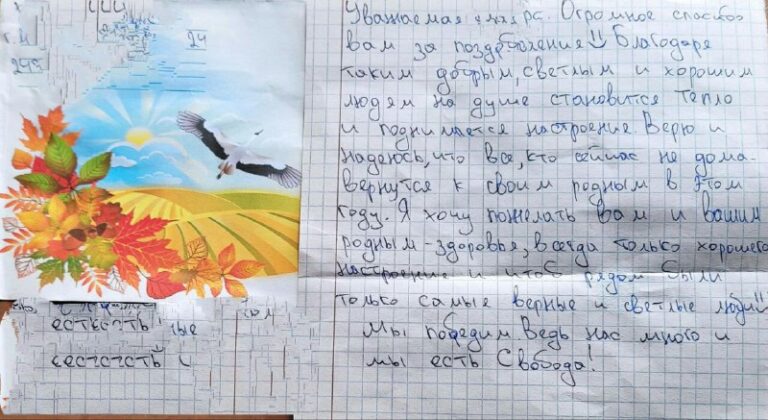 24
Уважаемая Огромное спасибо
вам за поздравления!! Благодаря
таким добрым, светлым и хорошим
людям на душе становится тепло
и поднимается настроение. Верю и
надеюсь, что все, кто сейчас не дома-
вернутся к своим родным в этом
году. Я хочу пожелать вам и вашим
родным - здоровья, всегда только хорошего
настроения и чтоб рядом были
только самые верные и светлые люди!!
Мы победим. Ведь нас много и
мы есть Свобода!